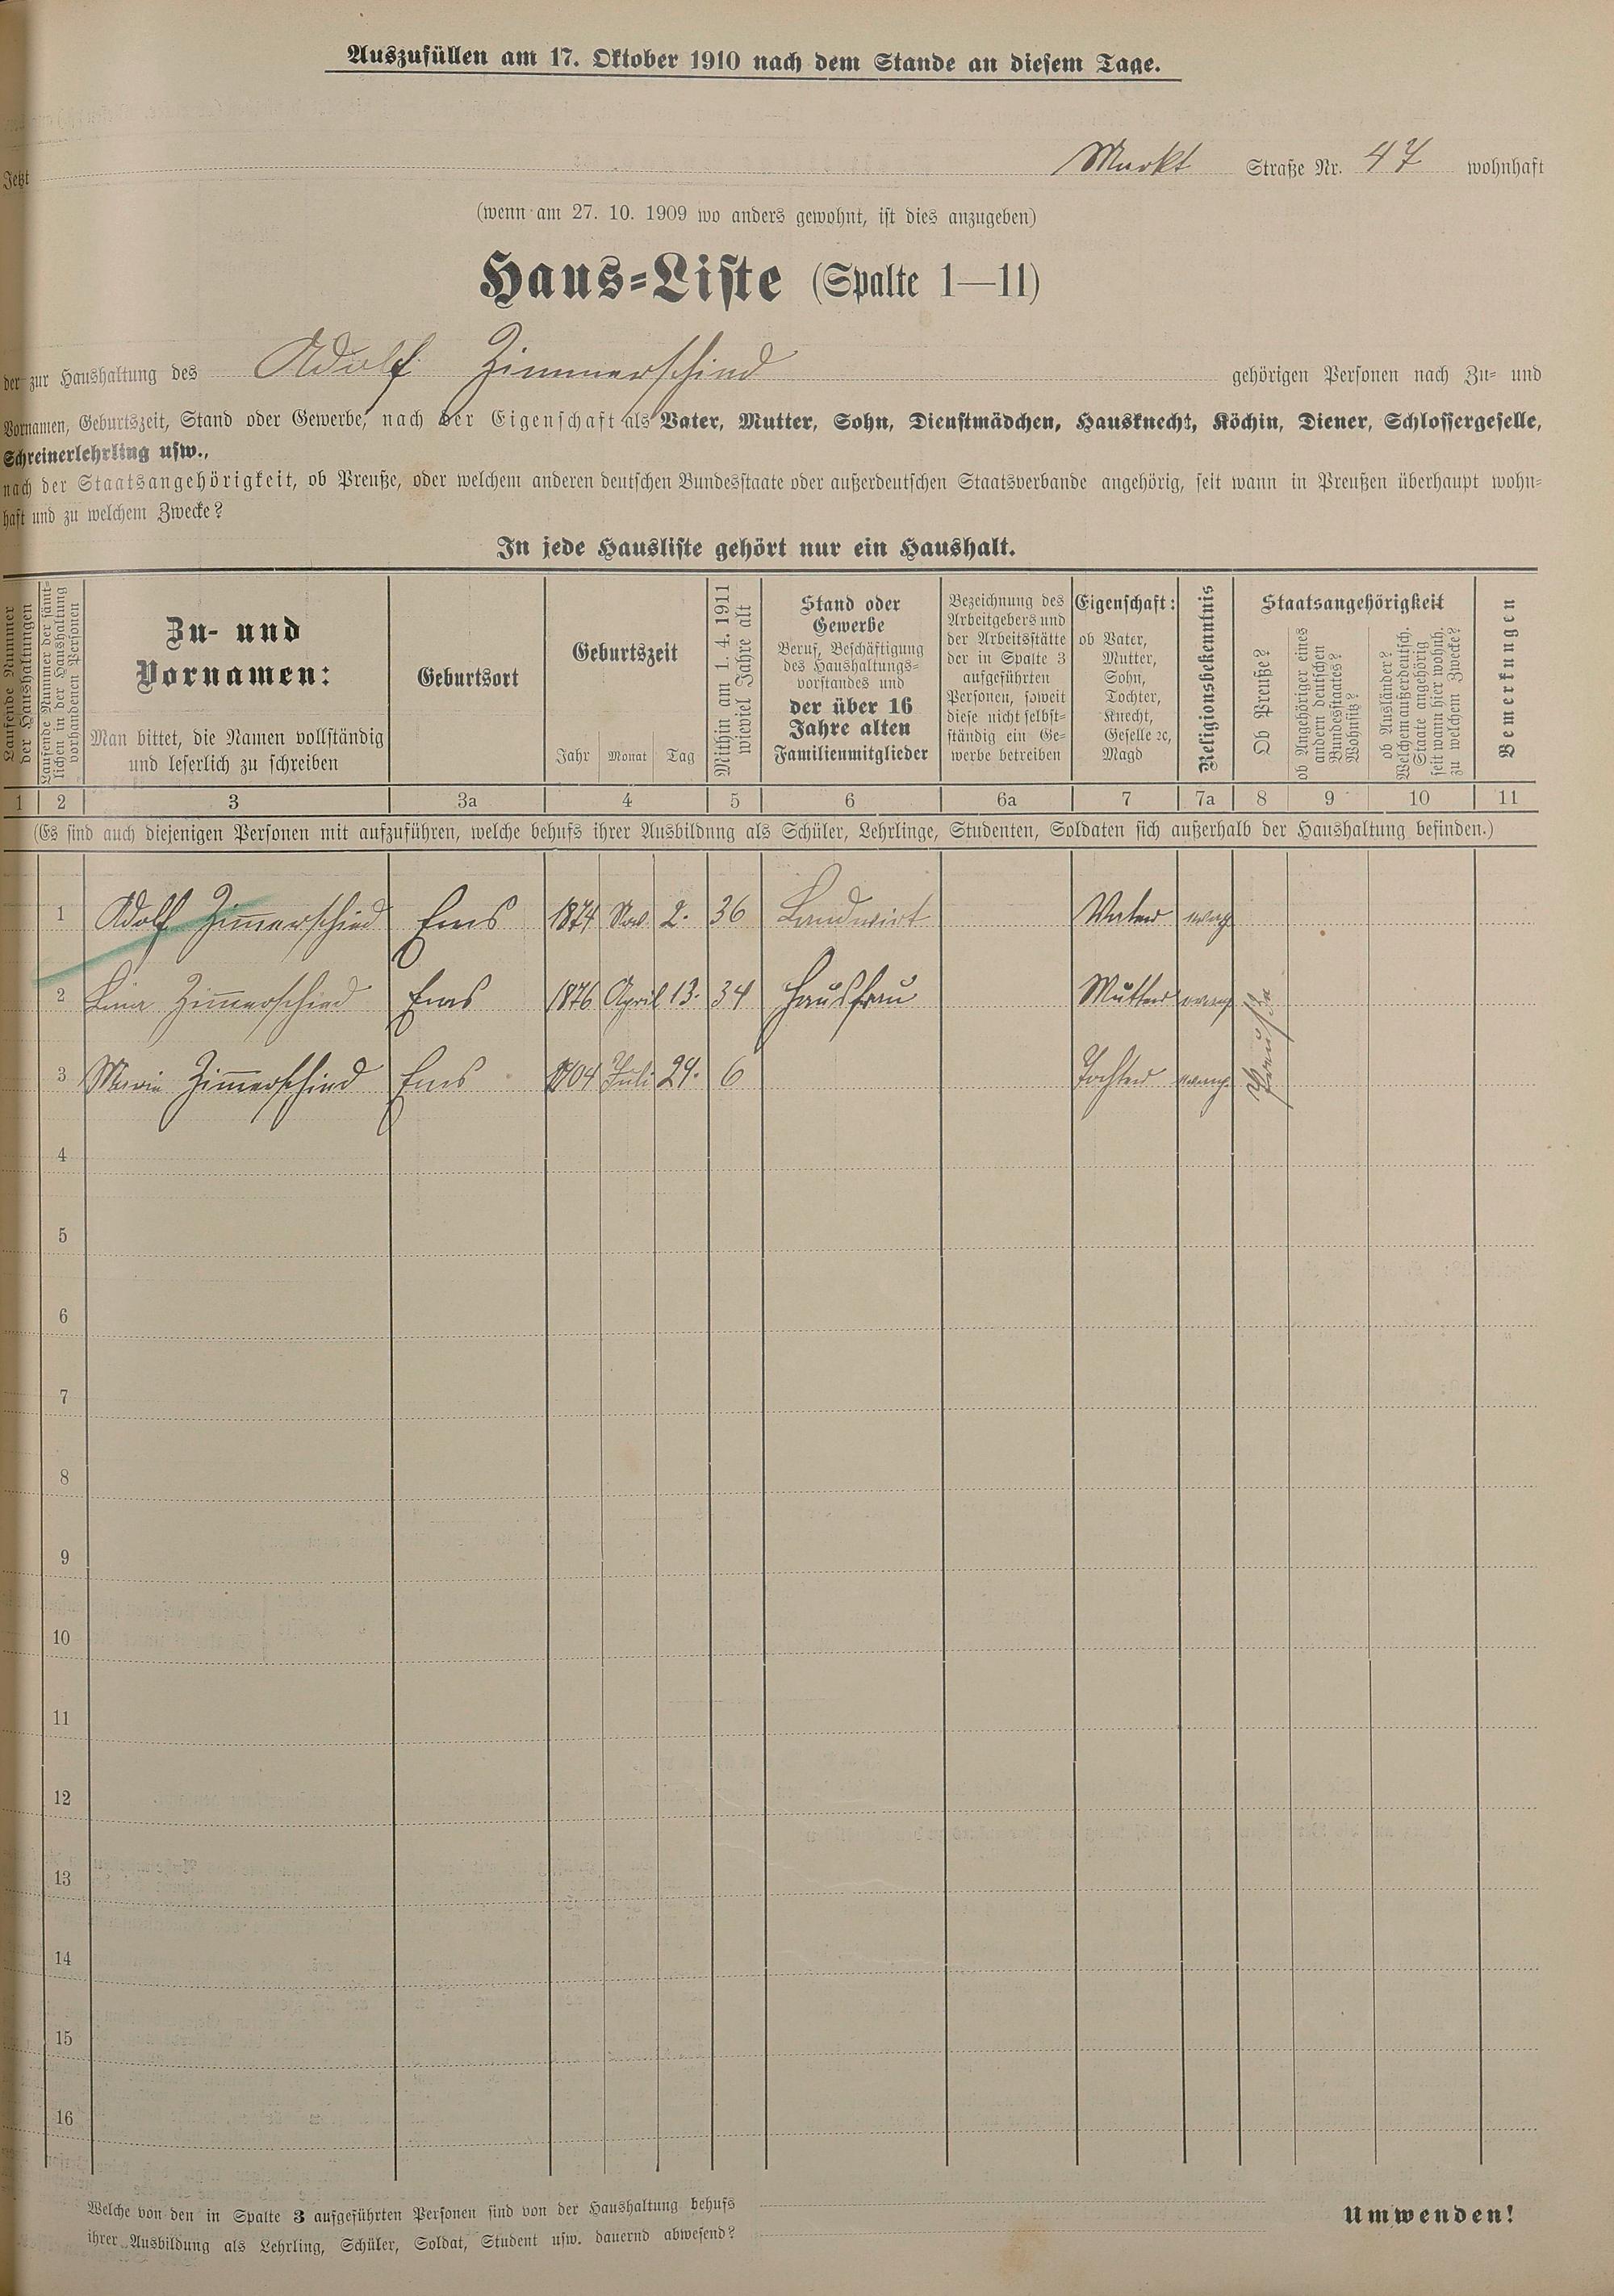 Auszufüllen am 17. Oktober 1910 nach dem Stande an diesem Tage.
Jetzt Markt Straße Nr. 47 wohnhaft
(wenn am 27. 10. 1909 wo anders gewohnt, ist dies anzugeben)
Haus-Liste (Spalte 1—11)
der zur Haushaltung des Adolf Zimmerschied gehörigen Personen nach Zu- und
Vornamen, Geburtszeit, Stand oder Gewerbe, nach der Eigenschaft als Vater, Mutter, Sohn, Dienstmädchen, Hausknecht, Köchin, Diener, Schlossergeselle,
Schreinerlehrling usw.,
nach der Staatsangehörigkeit, ob Preuße, oder welchem anderen deutschen Bundesstaate oder außerdeutschen Staatsverbande angehörig, seit wann in Preußen überhaupt wohn-
haft und zu welchem Zwecke?
In jede Hausliste gehört nur ein Haushalt.
Laufende Nummer
der Haushaltungen
Laufende Nummer der sämt-
lichen in der Haushaltung
vorhandenen Personen
Zu- und
Vornamen:
Man bittet, die Namen vollständig
und leserlich zu schreiben
Geburtsort
Geburtszeit
Jahr Monat Tag
Mithin am 1. 4. 1911
wieviel Jahre alt
Stand oder
Gewerbe
Beruf, Beschäftigung
des Haushaltungs-
vorstandes und
der über 16
Jahre alten
Familienmitglieder
Bezeichnung des
Arbeitgebers und
der Arbeitsstätte
der in Spalte 3
aufgeführten
Personen, soweit
diese nicht selbst-
ständig ein Ge-
werbe betreiben
Eigenschaft:
ob Vater,
Mutter,
Sohn,
Tochter,
Knecht,
Geselle ꝛc,
Magd
Religionsbekenntnis
Staatsangehörigkeit
Ob Preuße?
ob Angehöriger eines
andern deutschen
Bundesstaates?
Wohnsitz?
ob Ausländer?
Welchem außerdeutsch.
Staate angehörig
seit wann hier wohnh.
zu welchem Zwecke?
Bemerkungen
1 2 3 3a 4 5 6 6a 7 7a 8 9 10 11
(Es sind auch diejenigen Personen mit aufzuführen, welche behufs ihrer Ausbildung als Schüler, Lehrlinge, Studenten, Soldaten sich außerhalb der Haushaltung befinden.)
1 Adolf Zimmerschied Ems 1874 Nov. 2. 36 Landwirt Vater evang.
2 Lina Zimmerschied Ems 1876 April 13. 34 Hausfrau Mutter evang.
3 Marie Zimmerschied Ems 1904 Juli 24. 6 Tochter evang.
Preuße
4
5
6
7
8
9
10
11
12
13
14
15
16
Welche von den in Spalte 3 aufgeführten Personen sind von der Haushaltung behufs
ihrer Ausbildung als Lehrling, Schüler, Soldat, Student usw. dauernd abwesend?
Umwenden!